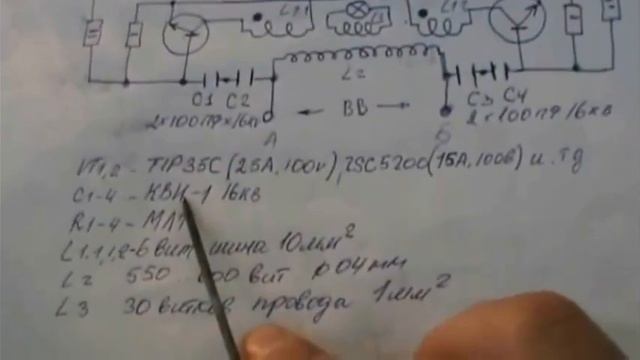 L1.1 L3 L1.2
L2
C1 C2 ВВ C3 C4
2х100ПФ 16кв
А Б
VT1,2 - TIP35C (25А, 100v), 2SC5200 (15А, 100в) и тд
C1-4 - КВИ-1 16кв
R1-4 - МЛТ
L1.1, 1.2 - 6 вит шина 10мм²
L2 550 вит 0,4мм
L3 30 витков провода 1мм²